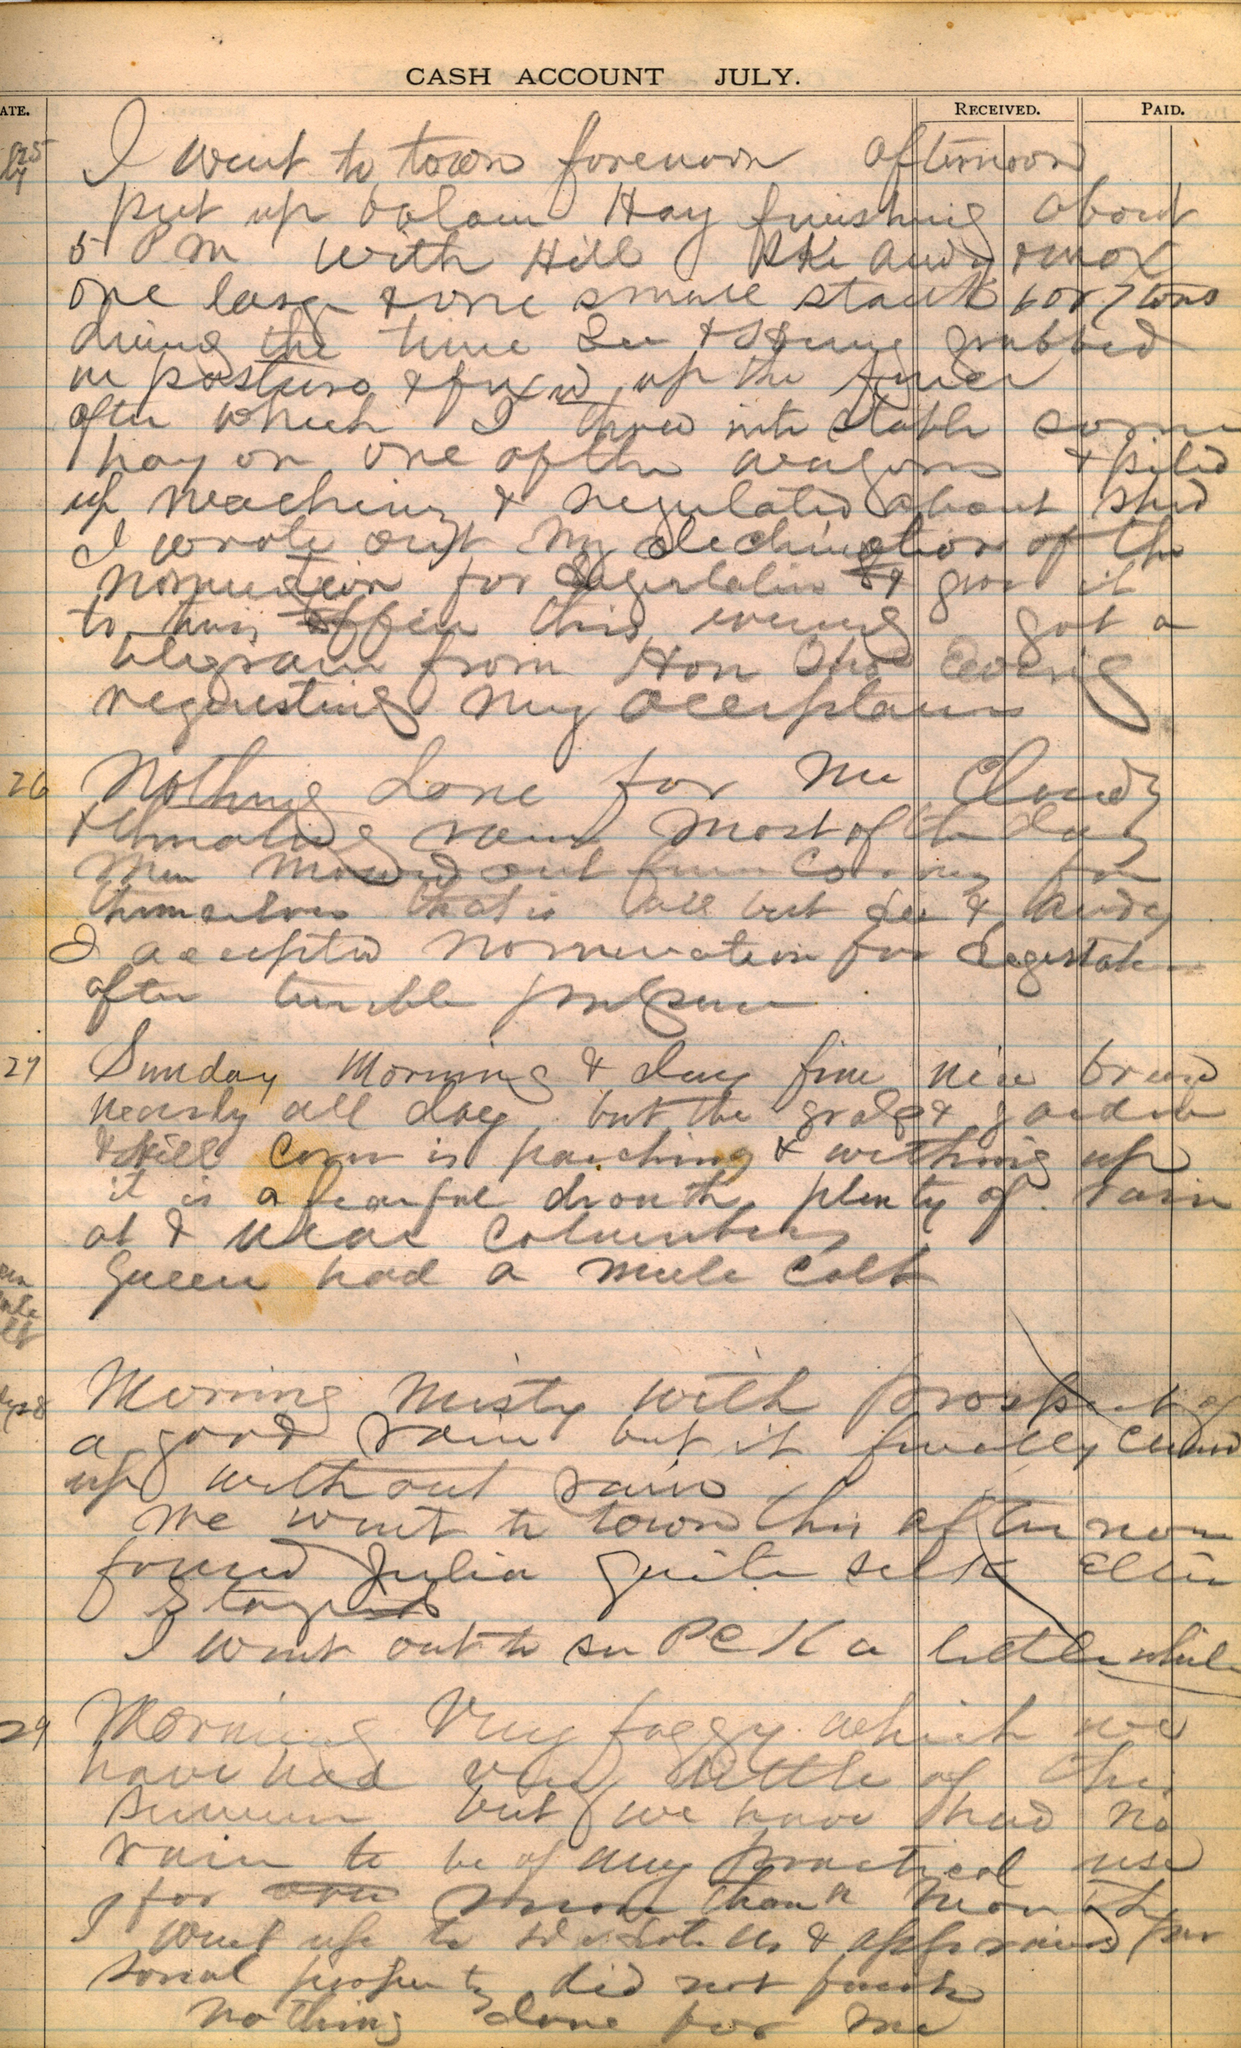 CASH ACCOUNT JULY.
ATE. RECEIVED. PAID.
25 I went to town forenoon afternoon
put up Hay finishing about
5 P M with Hill Andy & max
one large & one small stack 6 or 7 tons
during the time Lee & grubbed
in pasture & fixed up the
after which I threw into stable some
hay on one of the wagons & piled
up & regulated about shed
I wrote out my declination of the
nomination for & gave it
to this evening got a
telegram from Hon Ewing
requesting my acceptance
26 Nothing done for me Cloudy
& threatening rain most of the day
Men mowed out for
themselves that is all but Lee & Andy
I accepted nomination for Legislature
after terrible
27 Sunday Morning & day fine nice breeze
nearly all day but the grass & garden
& hill corn is parching & withing up
it is a fearful drouth plenty of rain
at & near Columbus
Queen had a mule Colt
28 Morning Misty with prospect of
a good rain but it finally cleared
up without rain
We went to town this afternoon
found Julia quite sick
Stayed
I went out to see P C K a little while
29 Morning Very foggy which we
have had very little of this
summer but we have had no
rain to be of any practical use
for more than a month
I went up to & appraised per
sonal property did not finish
nothing done for me